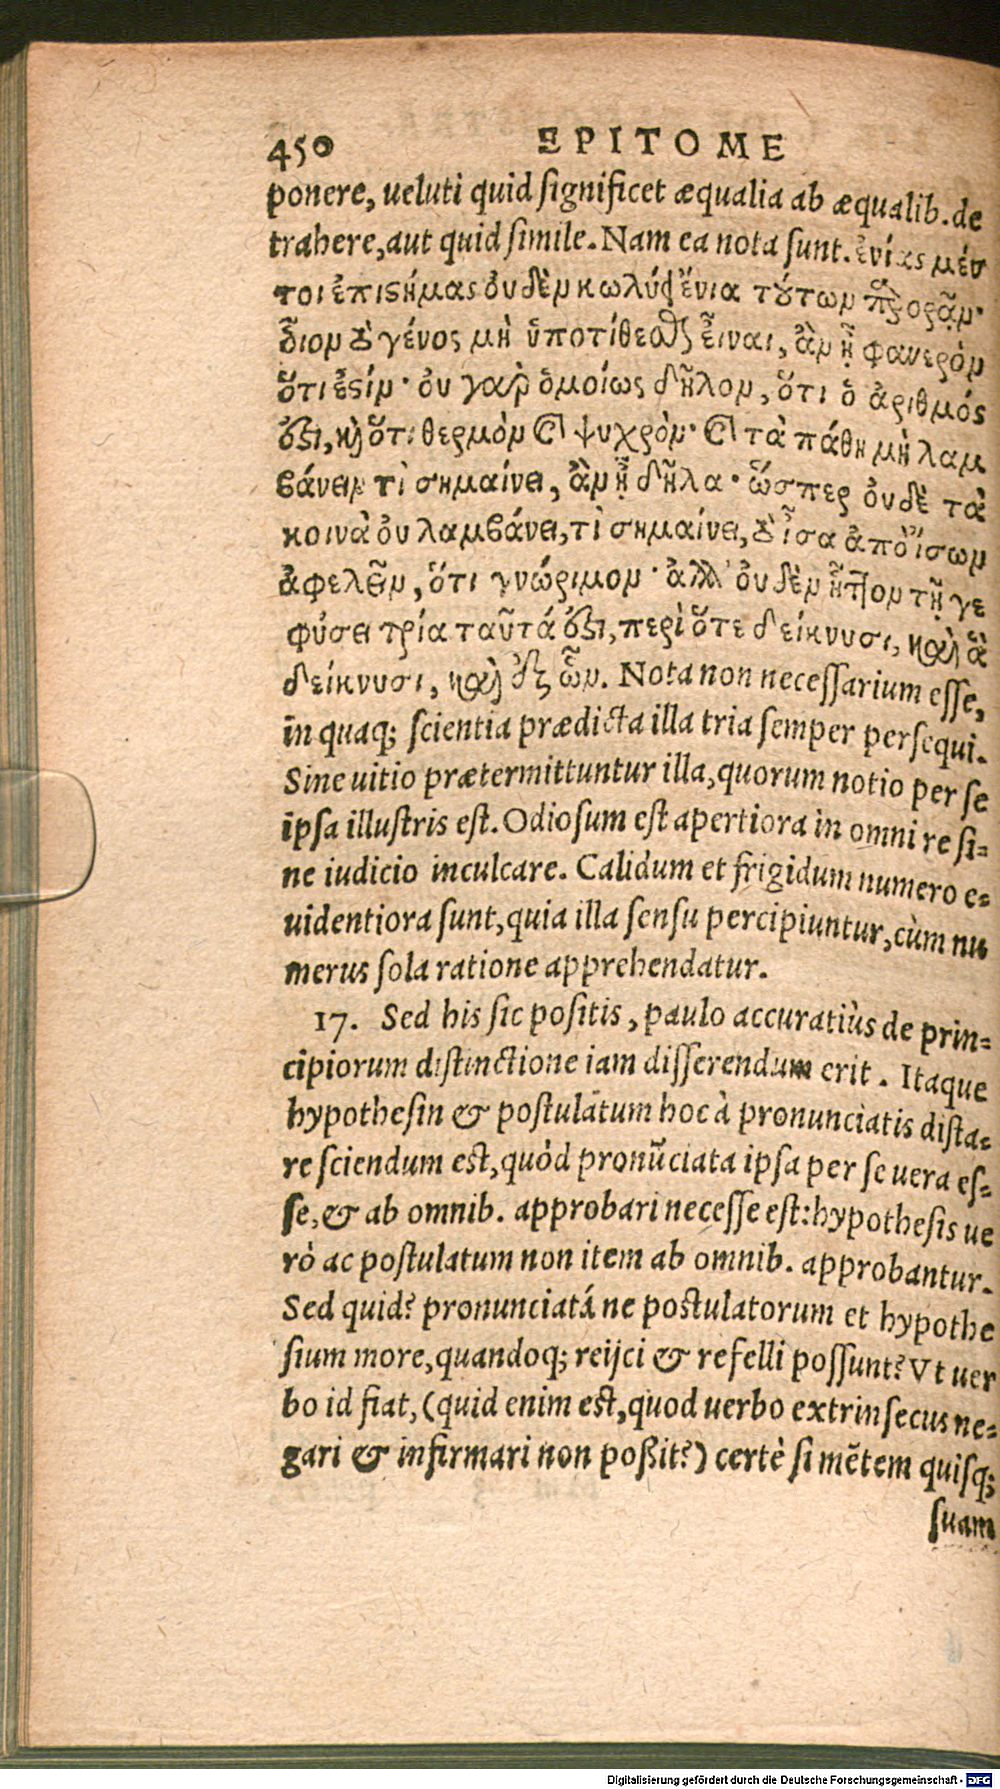 450 EPITOME
ponere, ueluti quid significet æqualia ab æqualib. de
trahere, aut quid simile. Nam ea nota sunt. ἐνίας μέν
τοι ἐπιστήμας οὐδὲν κωλύει ἔνια τούτων παρορᾷν·
οἷον τὸ γένος μὴ ὑποτίθεσθαι εἶναι, ἂν ᾖ φανερὸν
ὅτι ἐστίν· οὐ γὰρ ὁμοίως δῆλον, ὅτι ὁ ἀριθμός
ἐστι, καὶ ὅτι θερμὸν καὶ ψυχρὸν· καὶ τὰ πάθη μὴ λαμ
βάνειν τὶ σημαίνει, ἂν ᾖ δῆλα· ὥσπερ οὐδὲ τὰ
κοινὰ οὐ λαμβάνει, τὶ σημαίνει, τὸ ἶσα ἀπὸ ἴσων
ἀφελεῖν, ὅτι γνώριμον· ἀλλ' οὐδὲν ἧττον τῇ γε
φύσει τρία ταῦτά ἐστι, περὶ ὅτε δείκνυσι, καὶ ἃ
δείκνυσι, καὶ ἐξ ὧν. Nota non necessarium esse,
in quaq; scientia prædicta illa tria semper persequi.
Sine uitio prætermittuntur illa, quorum notio per se
ipsa illustris est. Odiosum est apertiora in omni re si-
ne iudicio inculcare. Calidum et frigidum numero e-
uidentiora sunt, quia illa sensu percipiuntur, cùm nu
merus sola ratione apprehendatur.
17. Sed his sic positis, paulo accuratiùs de prin-
cipiorum distinctione iam disserendum erit. Itaque
hypothesin & postulatum hoc à pronunciatis dista-
re sciendum est, quòd pronũciata ipsa per se uera es-
se, & ab omnib. approbari necesse est: hypothesis ue
rò ac postulatum non item ab omnib. approbantur.
Sed quid? pronunciatá ne postulatorum et hypothe
sium more, quandoq; reijci & refelli possunt? Vt uer
bo id fiat, (quid enim est, quod uerbo extrinsecus ne-
gari & infirmari non poßit?) certè si mẽtem quisq;
suam
Digitalisierung gefördert durch die Deutsche Forschungsgemeinschaft - DFG